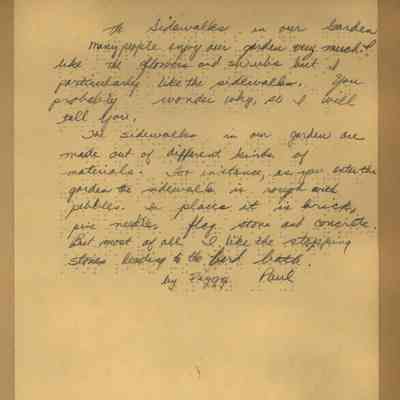 The Sidewalks in our Garden
Many people enjoy our garden very much. I
like the flowers and shrubs but I
particularly like the sidewalks. You
probably wonder why, so I will
tell you.
The sidewalks in our garden are
made out of different kinds of
materials. For instance, as you enter the
garden the sidewalk is rough with
pebbles. In places it is brick,
pine needles, flag stone and concrete.
But most of all I like the stepping
stones leading to the bird bath.
by Peggy Paul